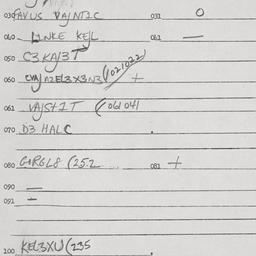 030 FAVUS VAJNTIC 031 O
040 LINKE KEJL 061 —
050 C3 KAJ3T
060 CVAJAZEL3X3N3 (021022) +
061 VAJStIT (061041
070 D3 HALC
080 GORGL8 (25.2 081 +
090 —
091 —
100 KEL3XU (235